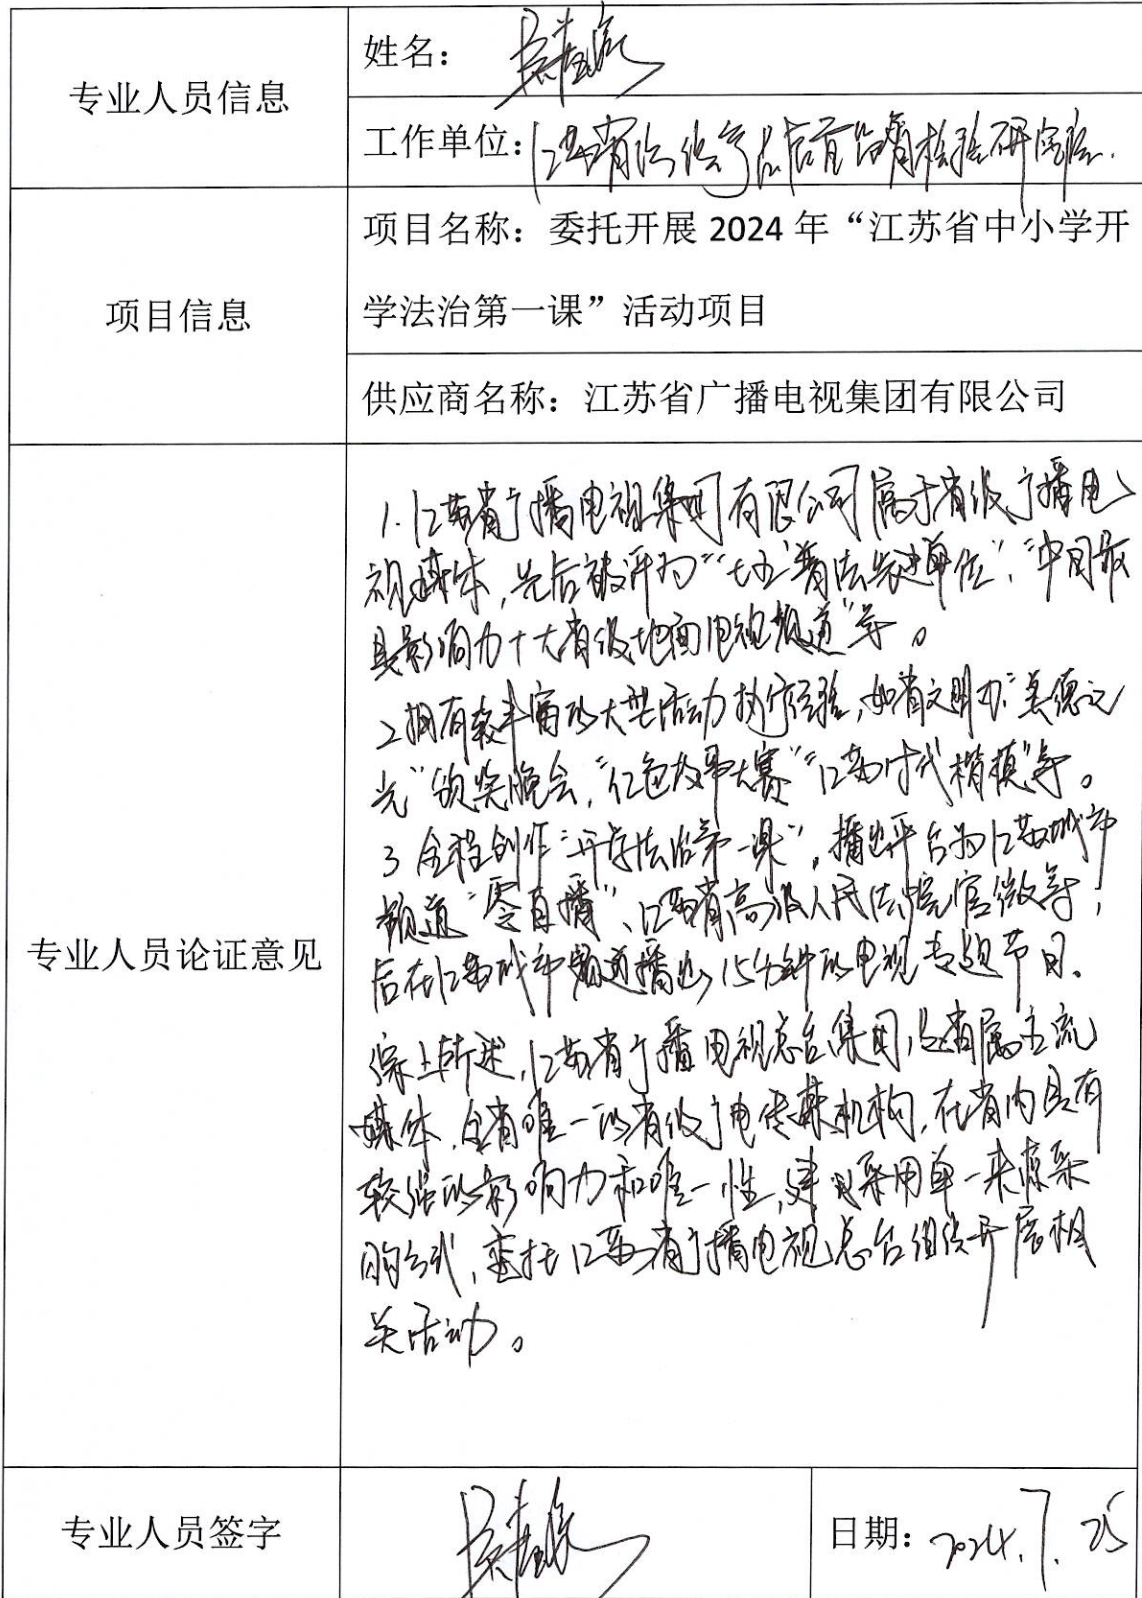 专业人员信息
姓名：
工作单位：江苏省 质量 检验研究院.
项目信息
项目名称：委托开展 2024 年“江苏省中小学开
学法治第一课”活动项目
供应商名称：江苏省广播电视集团有限公司
专业人员论证意见
1.江苏省广播电视集团有限公司属于省级广播电
视媒体，先后被评为“七五”普法先进单位”，“中国最
具影响力十大省级地面电视频道”等。
2拥有较丰富的大型活动执行经验，如省文明办“美德之
光”颁奖晚会，“红色故事大赛”“江苏时代楷模”等。
3 全程创作“开学法治第一课”，播出平台为江苏城市
频道“零直播”、江苏省高级人民法院官微等；
后在江苏城市频道播出15分钟的电视专题节目。
综上所述，江苏省广播电视总台集团，是省属主流
媒体，全省唯一的省级广电传媒机构，在省内具有
较强的影响力和唯一性，建议采用单一来源采
购方式，委托江苏省广播电视总台组织开展相
关活动。
专业人员签字
日期：2024.7.25